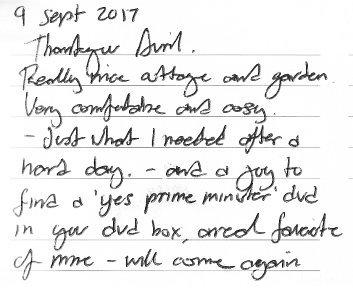 9 Sept 2017
Thankyou Avril.
Really nice cottage and garden.
Very comfortable and cosy.
- Just what I needed after a
hard day. - and a joy to
find a 'yes prime minister' dvd
in your dvd box, a real favourite
of mine - will come again